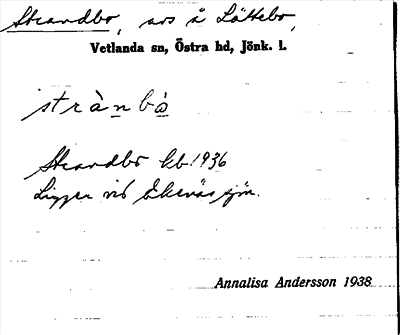 Strandbo, avs å Lättebo,
Vetlanda sn, Östra hd, Jönk. l.
strànbò
Strandbo kb. 1936
Ligger vid Ekenässjön.
Annalisa Andersson 1938